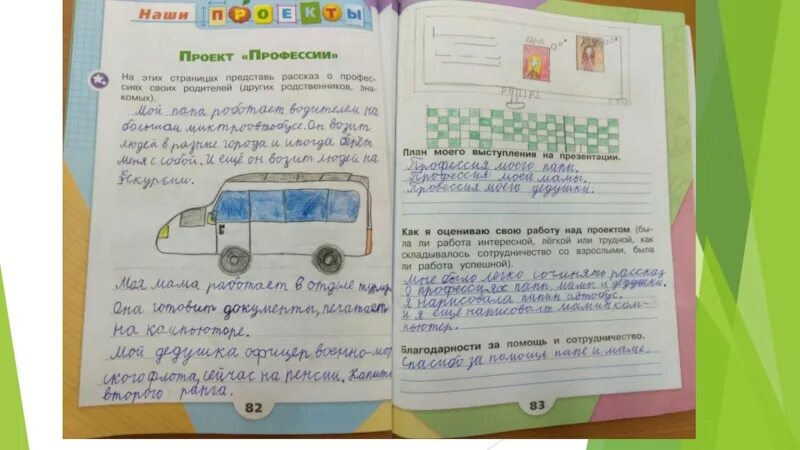 Наши ПРОЕКТЫ
ПРОЕКТ «ПРОФЕССИИ»
На этих страницах представь рассказ о профес-
сиях своих родителей (других родственников, зна-
комых).
Мой папа работает водителем на
большом миктроавтобусе. Он возит
людей в разные города и иногда берёт
меня с собой. И ещё он возит людей на
Экскурсии.
Моя мама работает в отделе
Она готовит документы, печатает
на компьюторе.
Мой дедушка офицер военно-мор
ского флота, сейчас на пенсии. Капит
второго ранга.
82
PHILIPS
План моего выступления на презентации.
Профессия моего папы.
Профессия моей мамы.
Провессия моего дедушки.
Как я оцениваю свою работу над проектом (бы-
ла ли работа интересной, лёгкой или трудной, как
складывалось сотрудничество со взрослыми, была
ли работа успешной).
Мне было легко сочинять рассказ
о профессиях папы, мамы и дедушки.
Я нарисовала папин автобус
и я ещё нарисовала мамин ком-
пьютер.
Благодарности за помощь и сотрудничество.
Спасибо за помощь папе и маме.
83